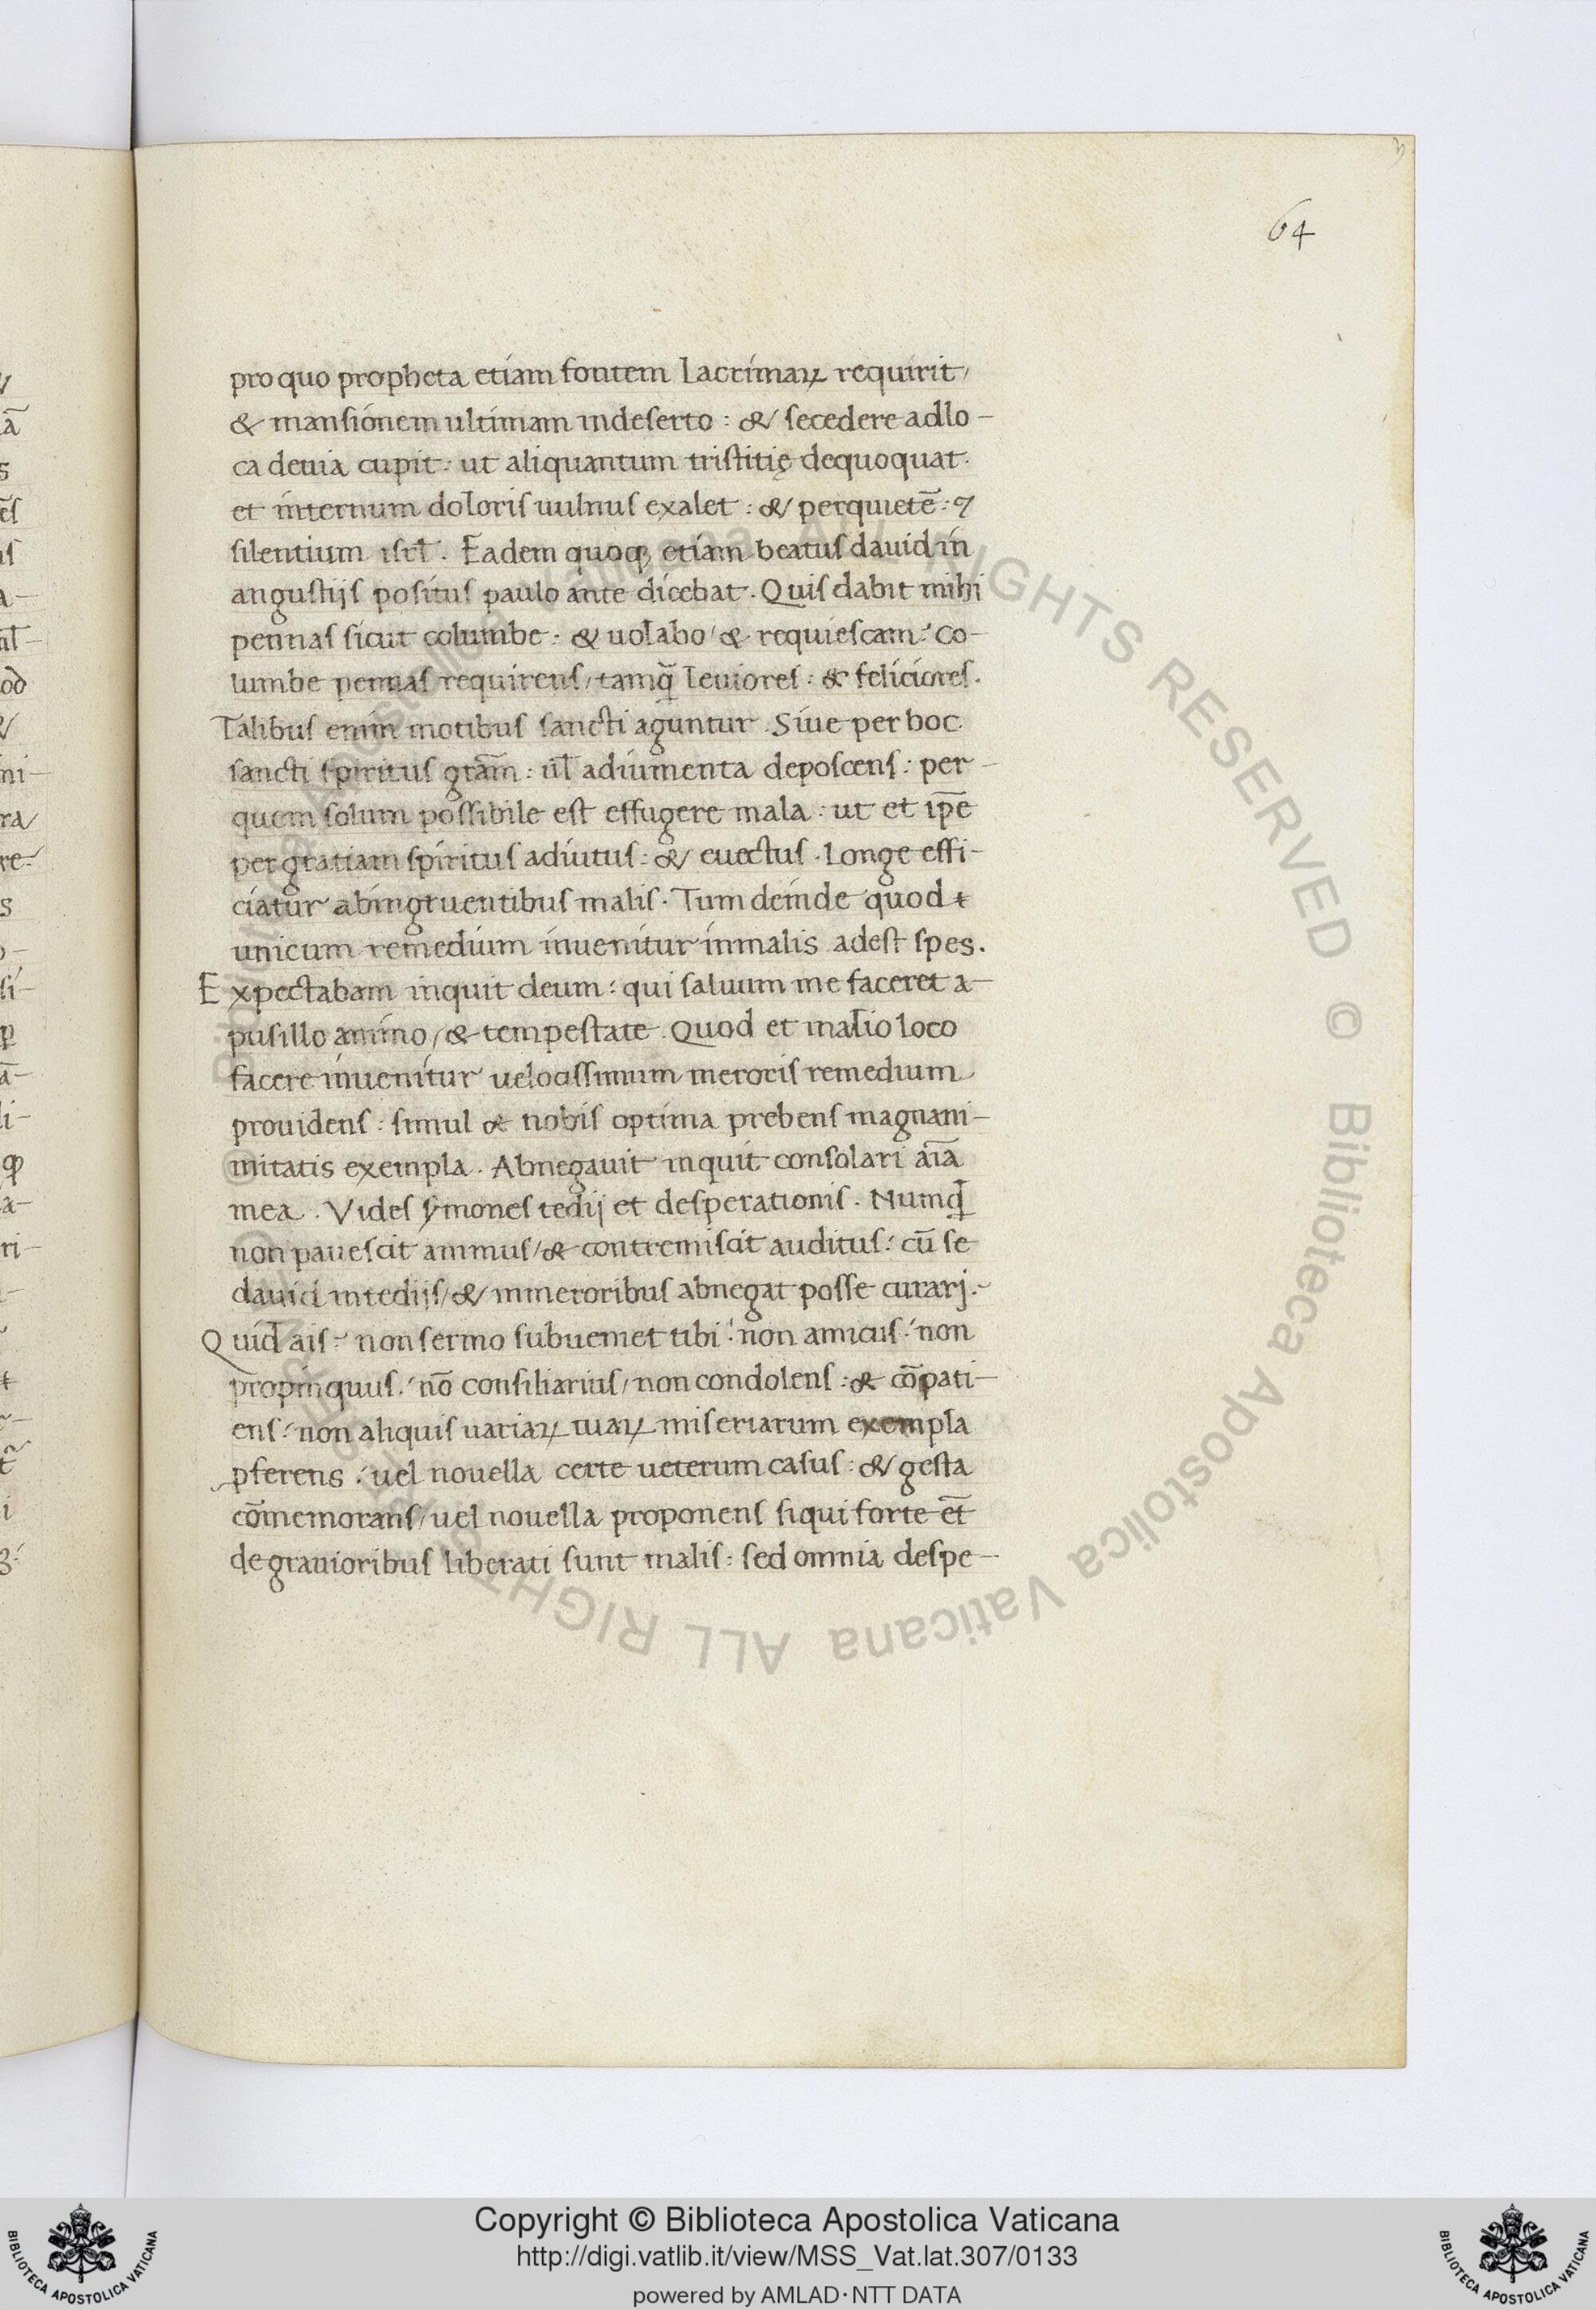 64
pro quo propheta etiam fontem lacrimaꝝ requirit /
& mansionem ultimam indeserto : & secedere adlo-
ca deuia cupit : ut aliquantum tristitię dequoquat .
et internum doloris uulnus exalet : & perquietē : ⁊
silentium isrł . Eadem quoqꝫ etiam beatus dauid in
angustijs positus paulo ante dicebat . Quis dabit mihi
pennas sicut columbe : & uolabo / & requiescam : Co-
lumbe pennas requirens / tamq̃ leuiores : & feliciores .
Talibus enim motibus sancti aguntur . Siue per hoc
sancti spiritus grām : uł adiumenta deposcens : per-
quem solum possibile est effugere mala : ut et ip̄e
per gratiam spiritus adiutus : & euectus . Longe effi-
ciatur abingruentibus malis . Tum deinde quod
unicum remedium inuenitur inmalis adest spes .
Expectabam inquit deum : qui saluum me faceret a-
pusillo animo / & tempestate . Quod et malło loco
facere inuenitur uelocissimum meroris remedium
prouidens : simul & nobis optima prebens magnani-
mitatis exempla . Abnegauit inquit consolari āīā
mea . Vides ymones tedij et desperationis . Numq̄
non pauescit animus / & contremiscit auditus : cū se
dauid intedijs / & inmeroribus abnegat posse curarj .
Quid ais : non sermo subuemet tibi : non amicus : non
propinquus : nō consiliarius / non condolens : & cōpati-
ens : non aliquis uariaꝝ tuaꝝ miseriarum exempla
ꝓferens : uel nouella certe ueterum casus : & gesta
cōmemorans / uel nouella proponens siqui forte et̄
de grauioribus liberati sunt malis : sed omnia despe-
Copyright © Biblioteca Apostolica Vaticana
http://digi.vatlib.it/view/MSS_Vat.lat.307/0133
powered by AMLAD·NTT DATA